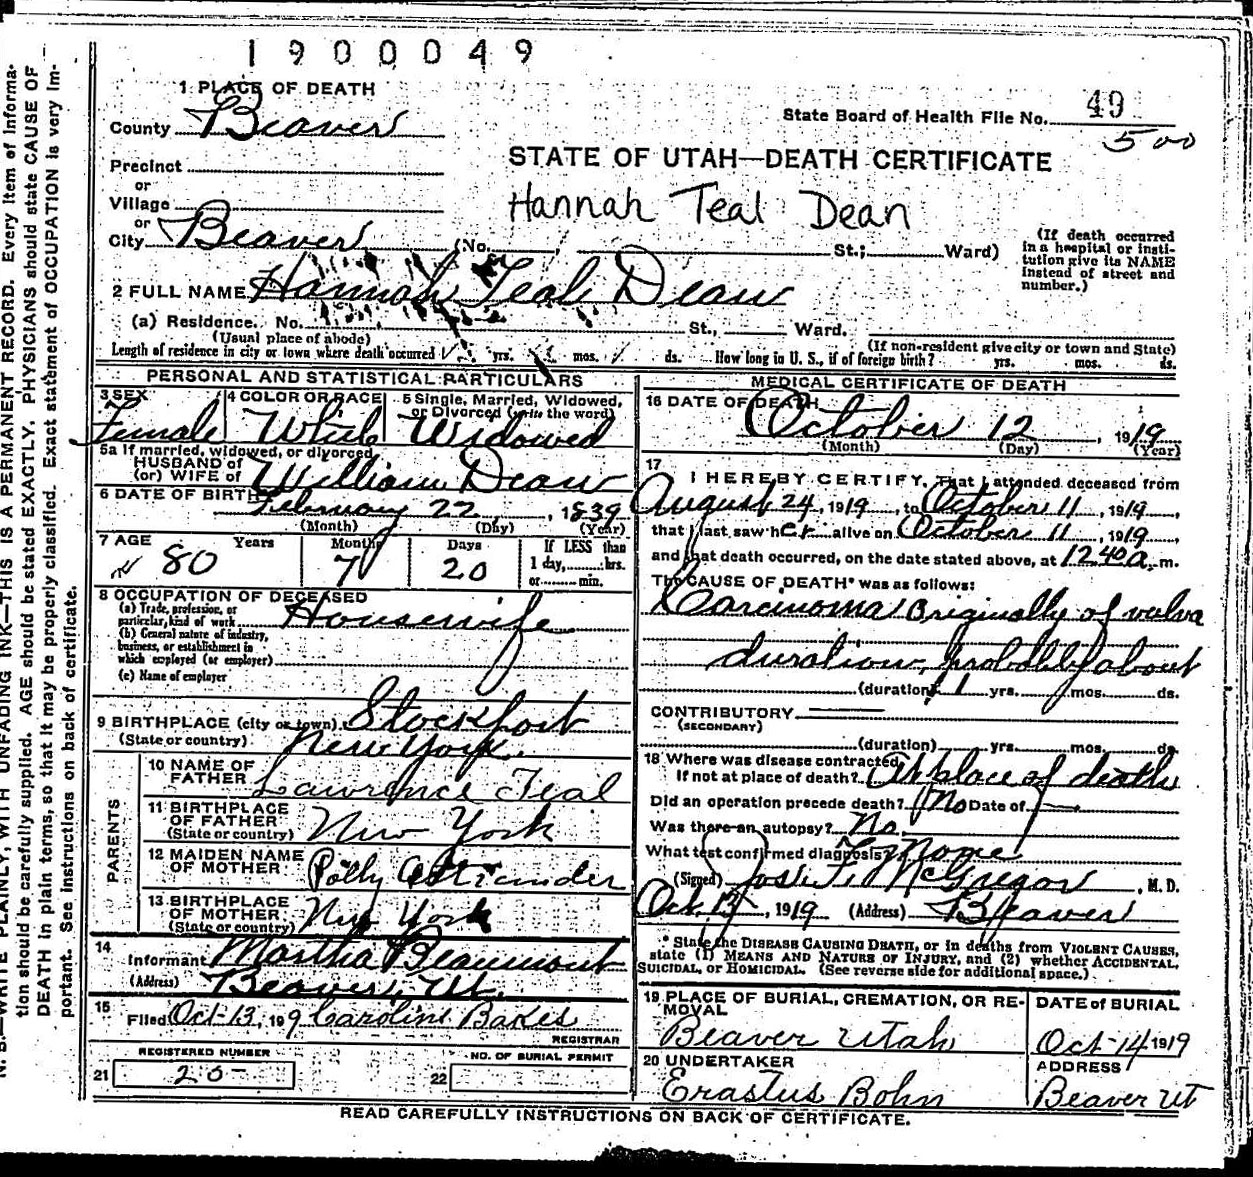 1900049
1 PLACE OF DEATH
County Beaver
State Board of Health File No. 49
500
Precinct
or
Village
or
City Beaver (No. St.; Ward)
STATE OF UTAH—DEATH CERTIFICATE
Hannah Teal Dean
(If death occurred
in a hospital or insti-
tution give its NAME
instead of street and
number.)
2 FULL NAME Hannah Teal Dean
(a) Residence. No. St., Ward.
(Usual place of abode) (If non-resident give city or town and State)
Length of residence in city or town where death occurred yrs. mos. ds. How long in U. S., if of foreign birth? yrs. mos. ds.
PERSONAL AND STATISTICAL PARTICULARS
3 SEX 4 COLOR OR RACE 5 Single, Married, Widowed,
or Divorced (write the word)
Female White Widowed
5a If married, widowed, or divorced
HUSBAND of
(or) WIFE of William Dean
6 DATE OF BIRTH
February 22, 1839
(Month) (Day) (Year)
7 AGE Years Months Days If LESS than
1 day, hrs.
or min.
80 7 20
8 OCCUPATION OF DECEASED
(a) Trade, profession, or
particular, kind of work Housewife
(b) General nature of industry,
business, or establishment in
which employed (or employer)
(c) Name of employer
9 BIRTHPLACE (city or town) Stockport
(State or country) New York
PARENTS
10 NAME OF
FATHER Lawrence Teal
11 BIRTHPLACE
OF FATHER
(State or country) New York
12 MAIDEN NAME
OF MOTHER Polly
13 BIRTHPLACE
OF MOTHER
(State or country) New York
14
Informant Martha Beaumont
(Address) Beaver, Ut.
15
Filed Oct-13, 19 9 Caroline Bakes
REGISTRAR
REGISTERED NUMBER
21 20
NO. OF BURIAL PERMIT
22
MEDICAL CERTIFICATE OF DEATH
16 DATE OF DEATH
October 12, 1919
(Month) (Day) (Year)
17
I HEREBY CERTIFY, That I attended deceased from
August 24, 1919, to October 11, 1919,
that I last saw her alive on October 11, 1919,
and that death occurred, on the date stated above, at 12 40 a. m.
The CAUSE OF DEATH* was as follows:
Carcinoma Originally of vulva
duration, probably about
(duration) 1 yrs. mos. ds.
CONTRIBUTORY
(SECONDARY)
(duration) yrs. mos. ds.
18 Where was disease contracted
If not at place of death? At place of death
Did an operation precede death? No Date of
Was there an autopsy? No.
What test confirmed diagnosis? None
(Signed) Jos. F. McGregor, M. D.
Oct. 13, 1919 (Address) Beaver
* State the DISEASE CAUSING DEATH, or in deaths from VIOLENT CAUSES,
state (1) MEANS AND NATURE OF INJURY, and (2) whether ACCIDENTAL,
SUICIDAL, or HOMICIDAL. (See reverse side for additional space.)
19 PLACE OF BURIAL, CREMATION, OR RE-
MOVAL
Beaver Utah
DATE of BURIAL
Oct-14 1919
20 UNDERTAKER
Erastus Bohn
ADDRESS
Beaver Ut
READ CAREFULLY INSTRUCTIONS ON BACK OF CERTIFICATE.
N. B.—WRITE PLAINLY, WITH UNFADING INK—THIS IS A PERMANENT RECORD. Every item of informa-
tion should be carefully supplied. AGE should be stated EXACTLY. PHYSICIANS should state CAUSE OF
DEATH in plain terms, so that it may be properly classified. Exact statement of OCCUPATION is very im-
portant. See instructions on back of certificate.